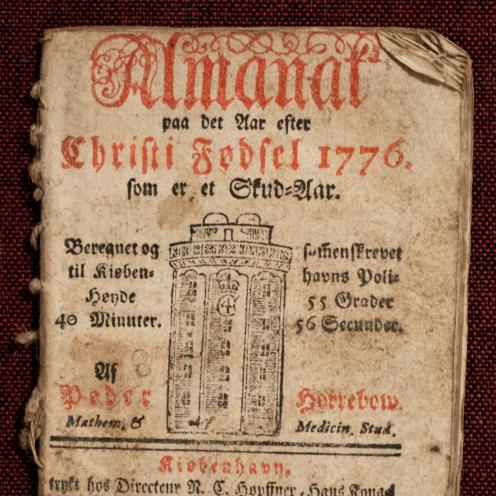 Almanak
paa det Aar efter
Christi Fødsel 1776.
som er et Skud=Aar.
Beregnet og sammenskrevet
til Kiøben= havns Poli-
Høyde 55 Grader
40 Minuter. 56 Secunder.
Af
Peder Horrebow.
Mathem. & Medicin. Stud.
Kiøbenhavn,
trykt hos Directeur N. C. Høpffner, Hans Kongel